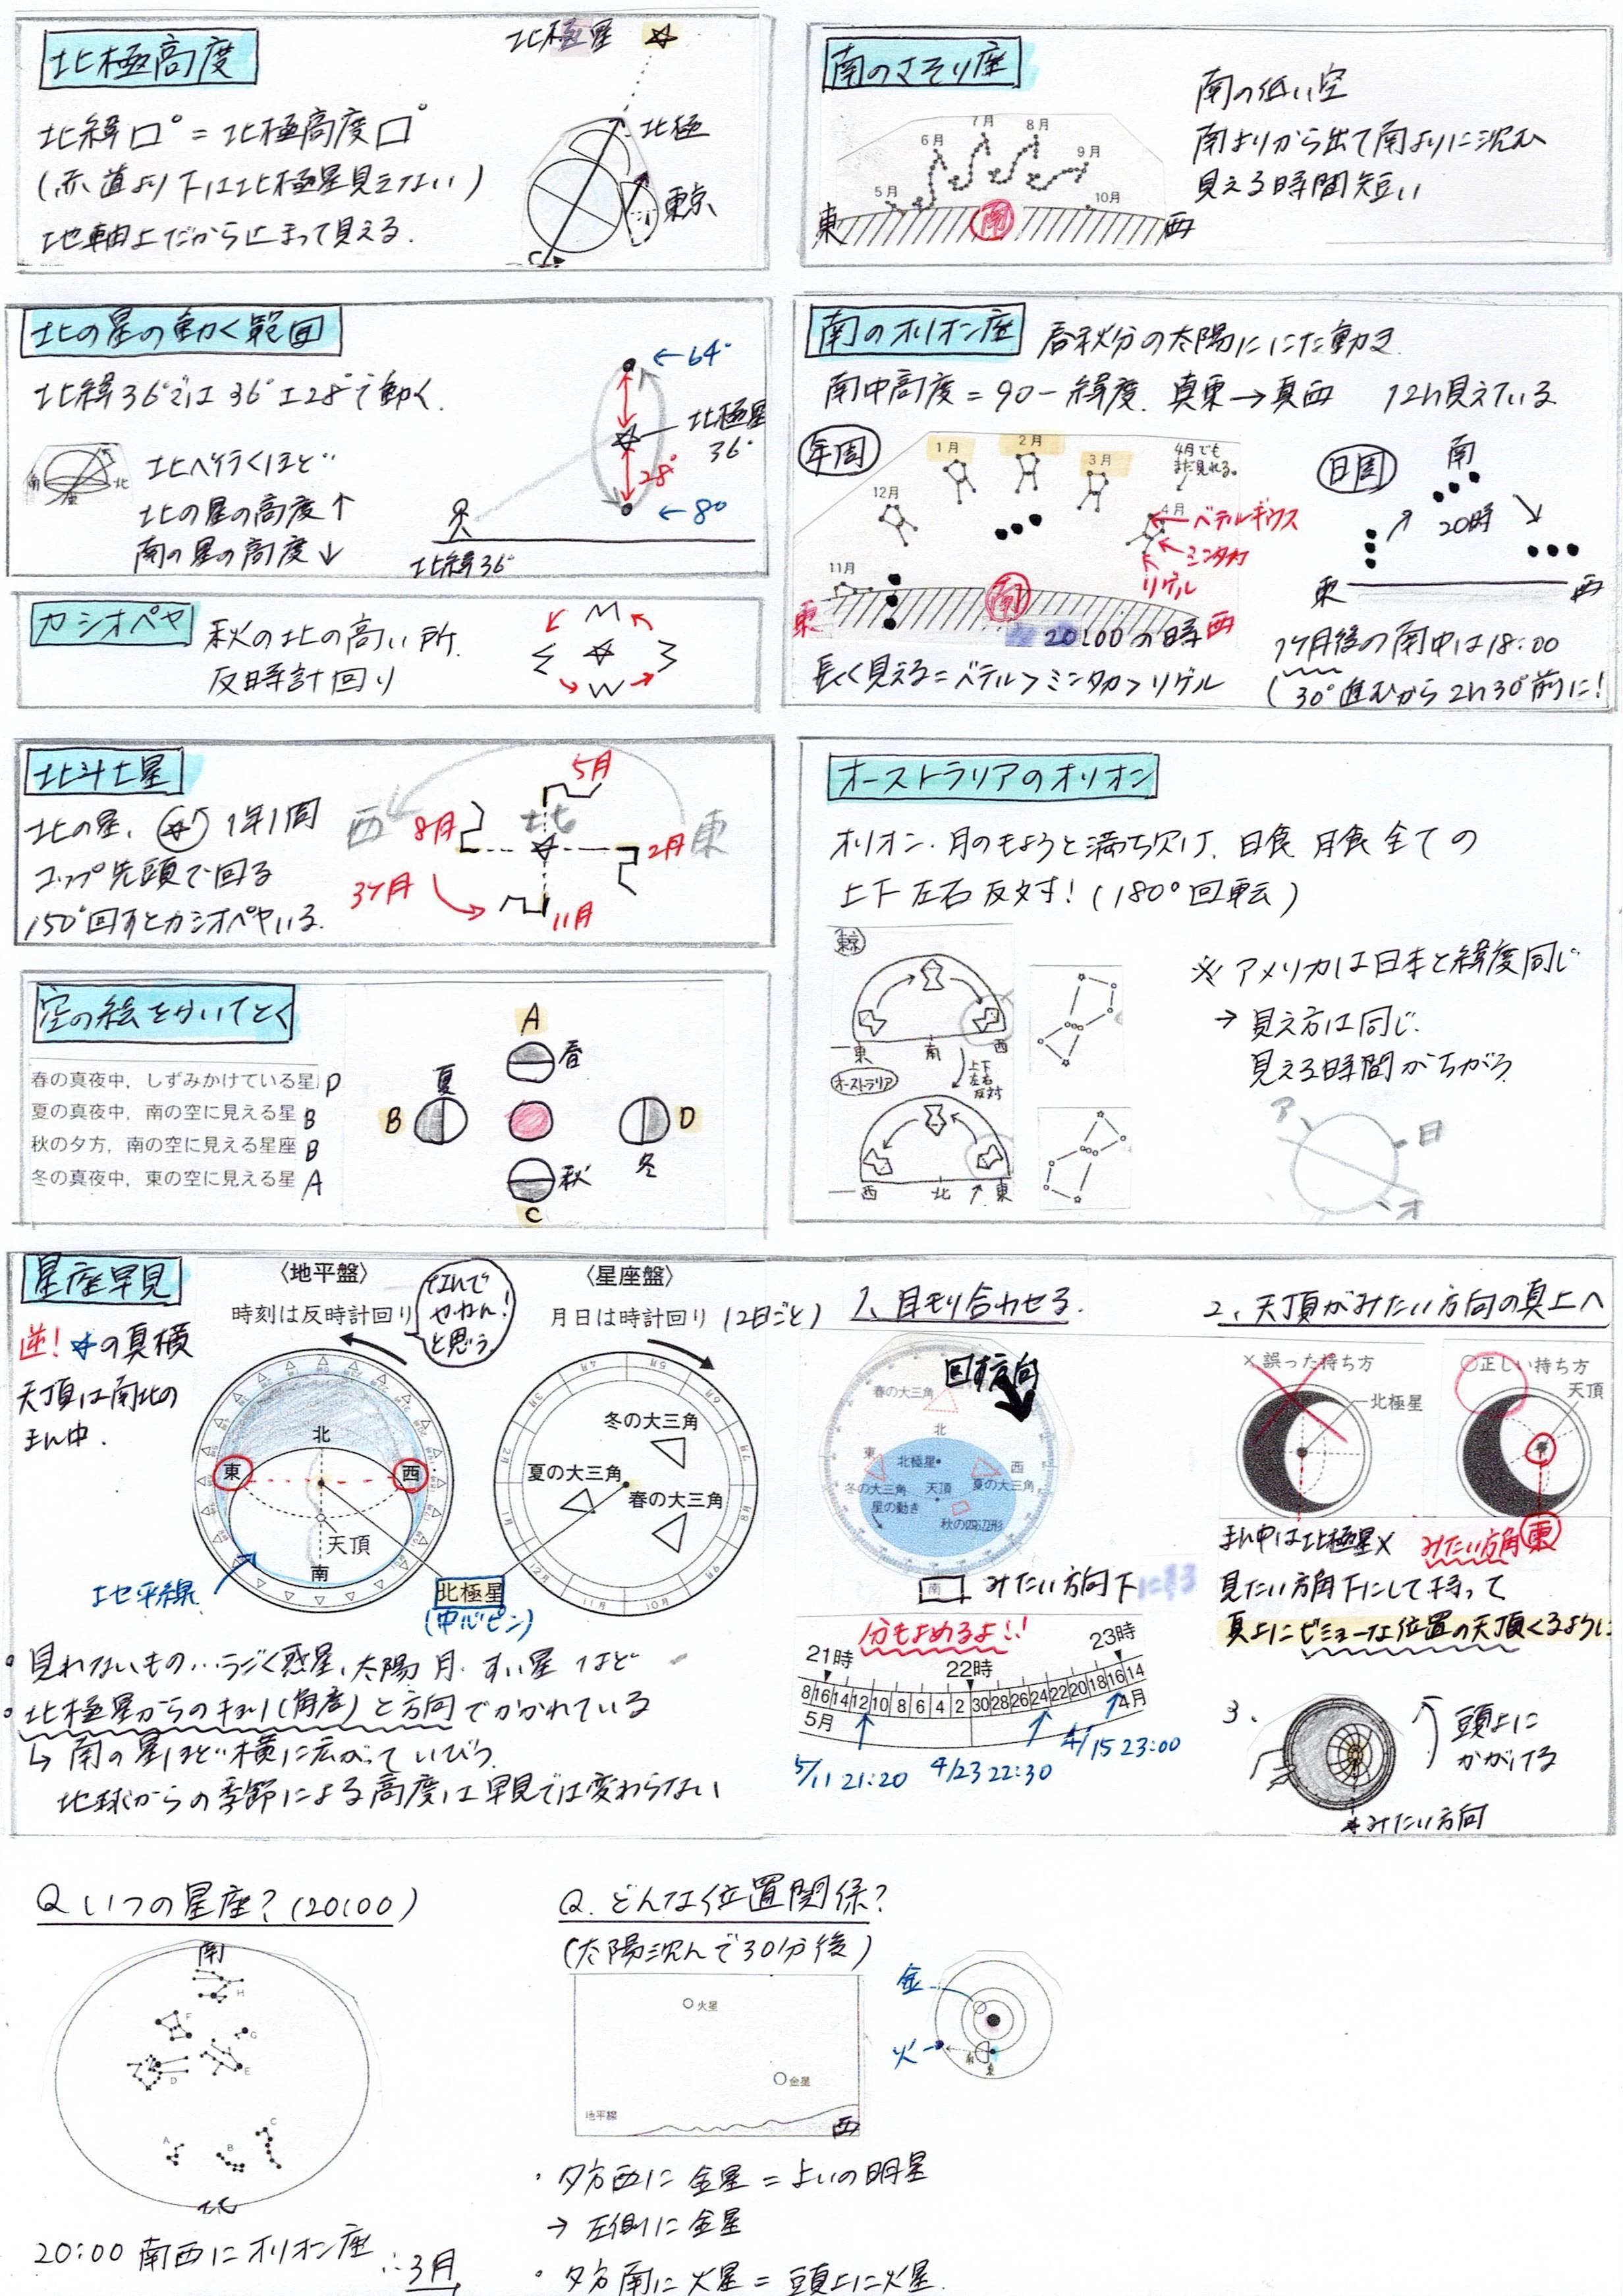 北極高度
北極星
北緯□°=北極高度□°
(赤道より下は北極星見えない)
地軸上だから止まって見える.
北極
東京
南のさそり座
南の低い空
南よりから出て南よりに沈む
見える時間短い
5月
6月
7月
8月
9月
10月
東
南
西
北の星の動く範囲
北緯36°では36°±28°で動く.
北へ行くほど
北の星の高度↑
南の星の高度↓
南
北
←64°
北極星
36°
28°
←8°
北緯36°
南のオリオン座
春秋分の太陽ににた動き
南中高度=90-緯度. 真東→真西 12h見えている
年周
11月
12月
1月
2月
3月
4月でも
まだ見れる。
4月
ベテルギウス
ミンタカ
リゲル
東
南
西
20:00の時
長く見える=ベテル>ミンタカ>リゲル
日周
南
20時
東
西
1ヶ月後の南中は18:00
(30°進むから2h30°前に!
カシオペヤ
秋の北の高い所.
反時計回り
北斗七星
北の星、
1年1周
コップ先頭で回る
150°回すとカシオペヤいる.
西
北
東
5月
8月
2月
3ヶ月
11月
オーストラリアのオリオン
オリオン・月のもようと満ち欠け、日食 月食 全ての
上下左右反対!(180°回転)
東京
東
南
西
上下
左右
反対
オーストラリア
西
北
東
※アメリカは日本と緯度同じ
→見え方は同じ.
見える時間がちがう
ア
日
オ
空の絵をかいてとく
春の真夜中，しずみかけている星 D
夏の真夜中，南の空に見える星 B
秋の夕方，南の空に見える星座 B
冬の真夜中，東の空に見える星 A
A
春
夏
B
D
冬
秋
C
星座早見
逆!
の真横
天頂は南北の
まん中.
〈地平盤〉
時刻は反時計回り
なんで
やねん!
と思う.
北
東
西
天頂
南
地平線
〈星座盤〉
月日は時計回り(2日ごと)
冬の大三角
夏の大三角
春の大三角
北極星
(中心ピン)
・見れないもの…うごく惑星、太陽 月. すい星 など
・北極星からのキョリ(角度)と方向でかかれている
↳南の星ほど横に広がっていびつ
地球からの季節による高度は早見では変わらない
1、目もり合わせる.
回す方向
春の大三角
北
東
北極星
西
冬の大三角
天頂
夏の大三角
星の動き
秋の四辺形
南
みたい方向下にする
分もよめるよ!!
21時
22時
23時
8 16 14 12 10 8 6 4 2 30 28 26 24 22 20 18 16 14
5月
4月
5/11 21:20
4/23 22:30
4/15 23:00
2、天頂がみたい方向の真上へ
×誤った持ち方
北極星
○正しい持ち方
天頂
まん中は北極星×
みたい方角 東
見たい方角下にして持って
真上にビミョーな位置の天頂くるように
3、
頭上に
かかげる
みたい方向
Q いつの星座?(20:00)
南
H
F
G
D
E
A
B
C
北
20:00 南西にオリオン座
∴3月
Q. どんな位置関係?
(太陽沈んで30分後)
火星
金星
地平線
西
金
火
・夕方西に金星=よいの明星
→左側に金星
・夕方南に火星=頭上に火星.